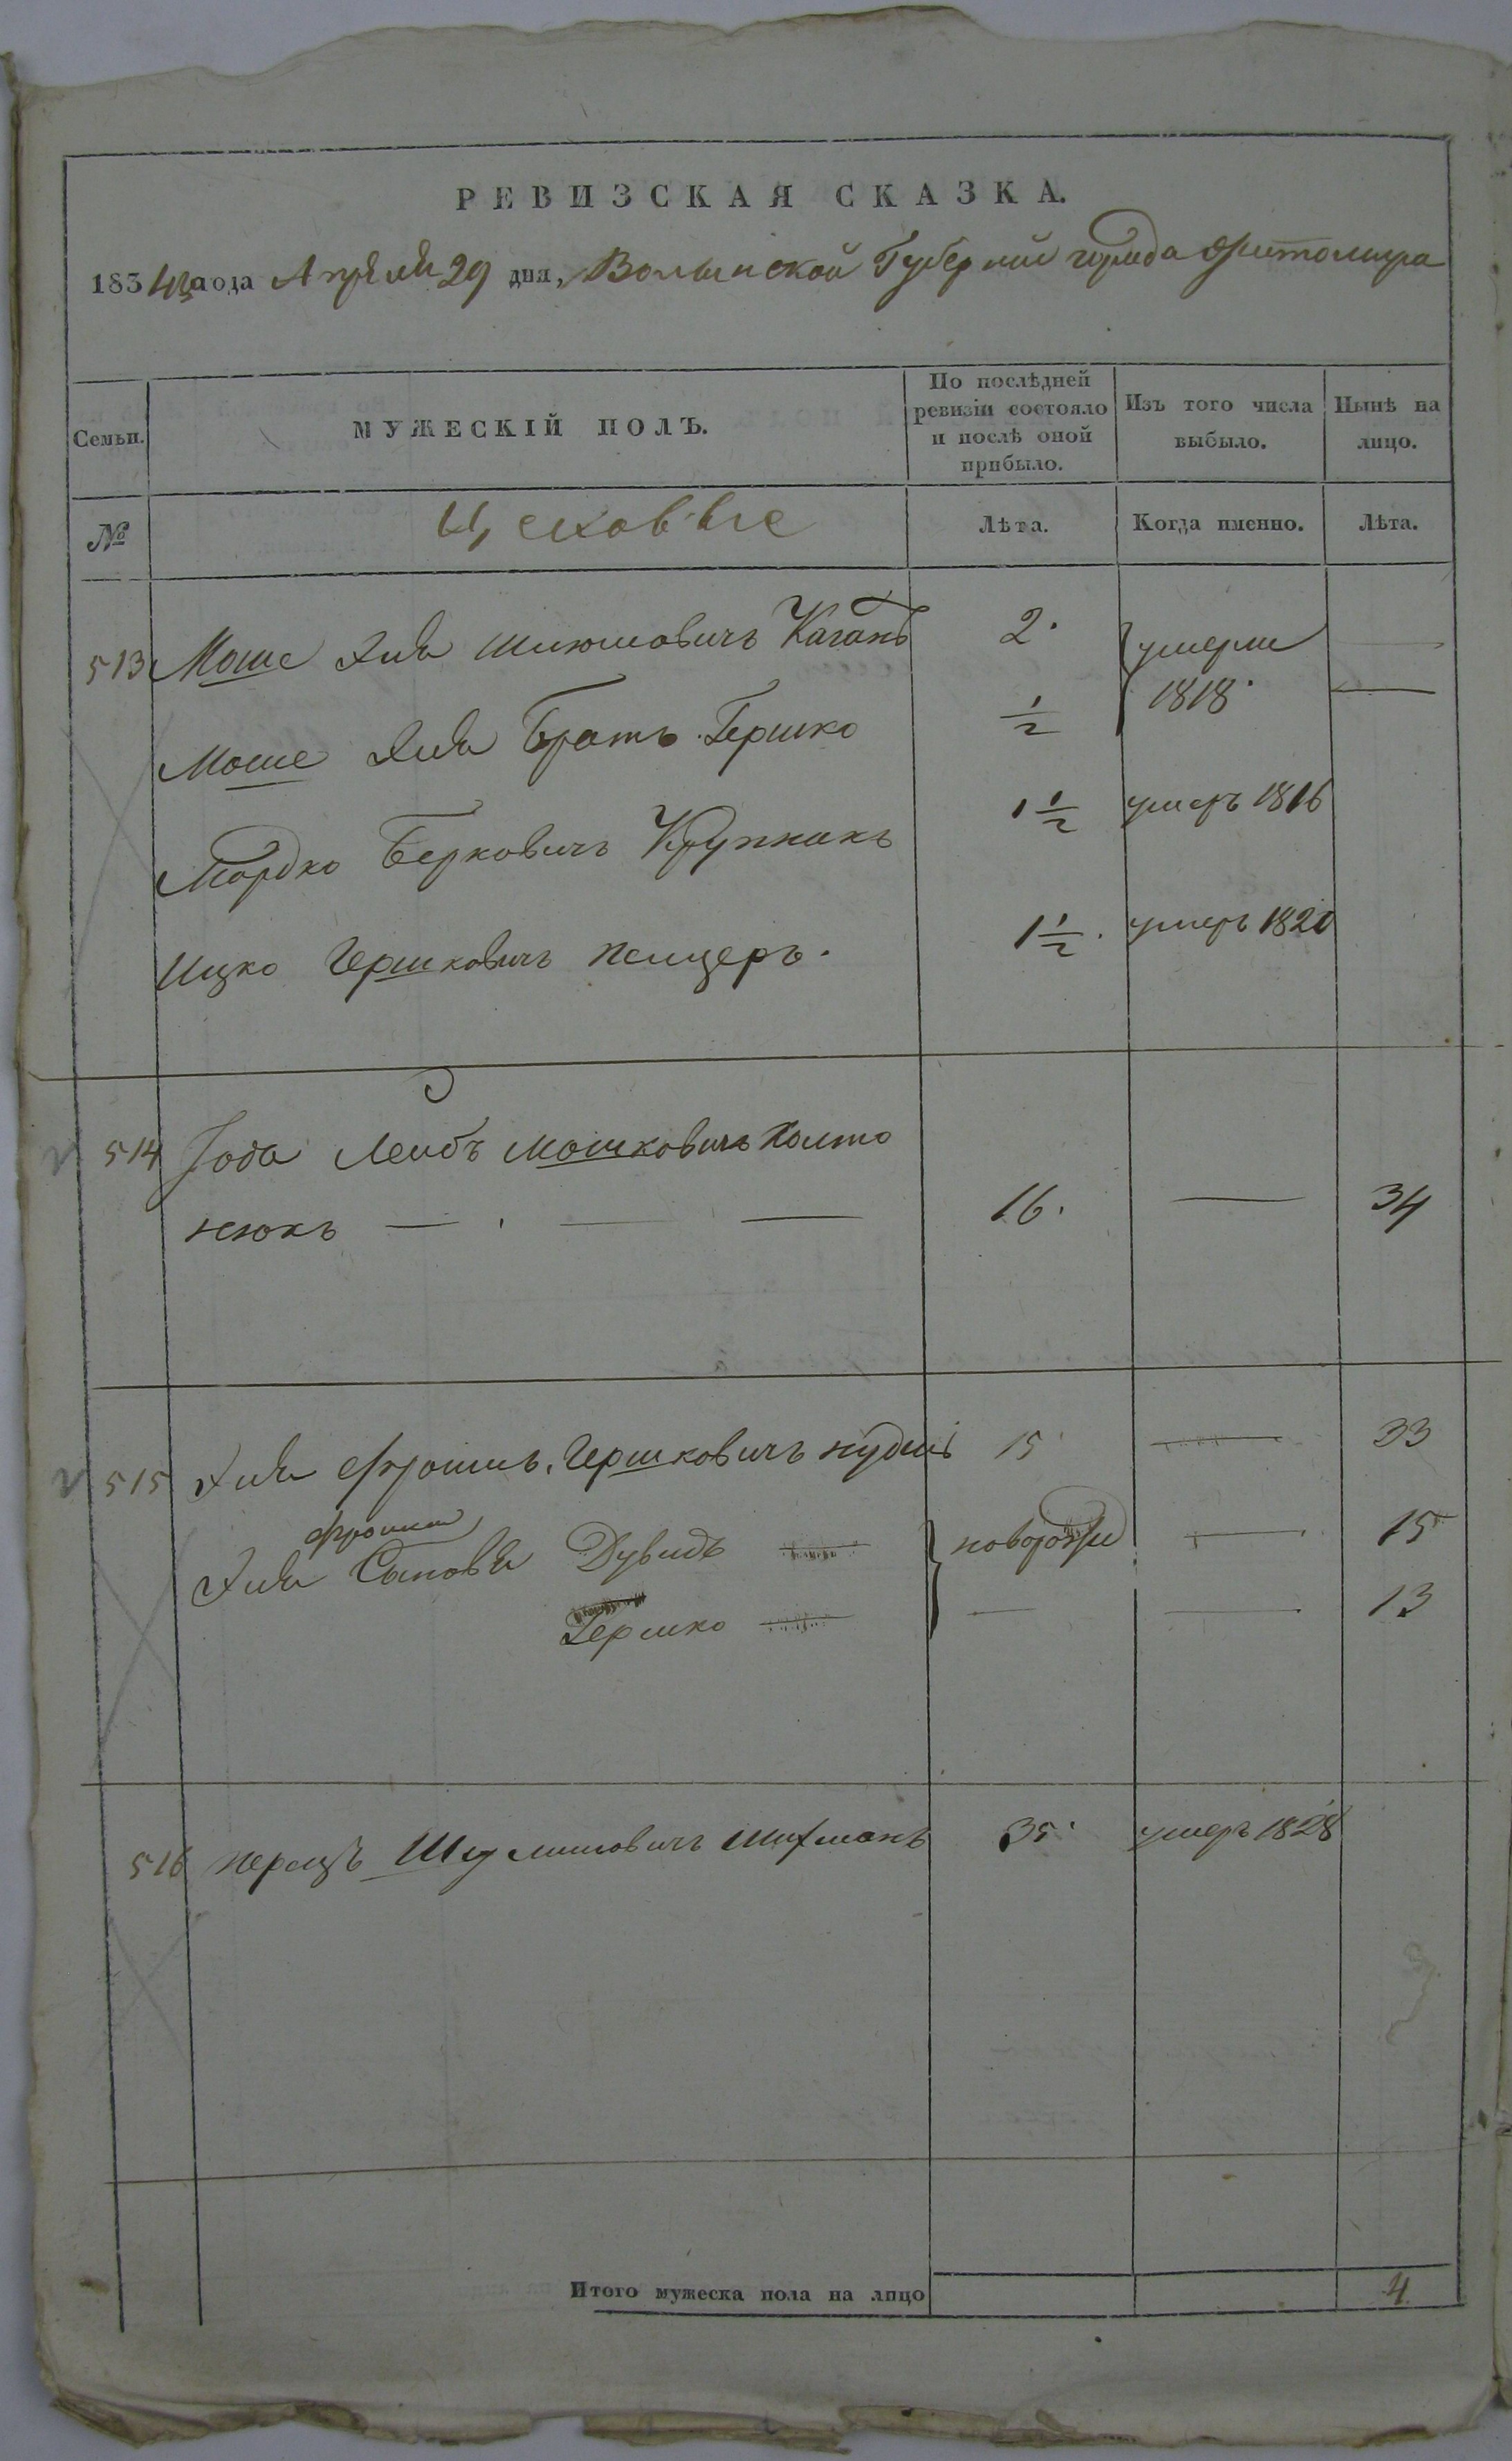 РЕВИЗСКАЯ СКАЗКА.
1834 года Апреля 29 дня, Волынской Губернии города Житомира
Семьи.
МУЖЕСКІЙ ПОЛЪ.
По послѣдней ревизіи состояло и послѣ оной прибыло.
Изъ того числа выбыло.
Нынѣ на лицо.
№
Цеховые
Лѣта.
Когда именно.
Лѣта.
513 Моше Хаим Шиомовичъ Каганъ 2. умерли —
Моше Хаима Братъ Гершко ½ 1818. —
Мордко Берковичъ Крупникъ 1½ умеръ 1816
Ицко Гершковичъ 1½. умеръ 1820
514 Лейбъ Мошковичъ Колто
нюкъ — — — 16. — 34
515 Хаим Фроимъ Гершковичъ 15 — 33
Фроима
Хаима Сыновья Дувидъ — новорожд — 15
Гершко — — — 13
516 перецъ Шулимовичъ Шифманъ 35. умеръ 1828
Итого мужеска пола на лицо 4